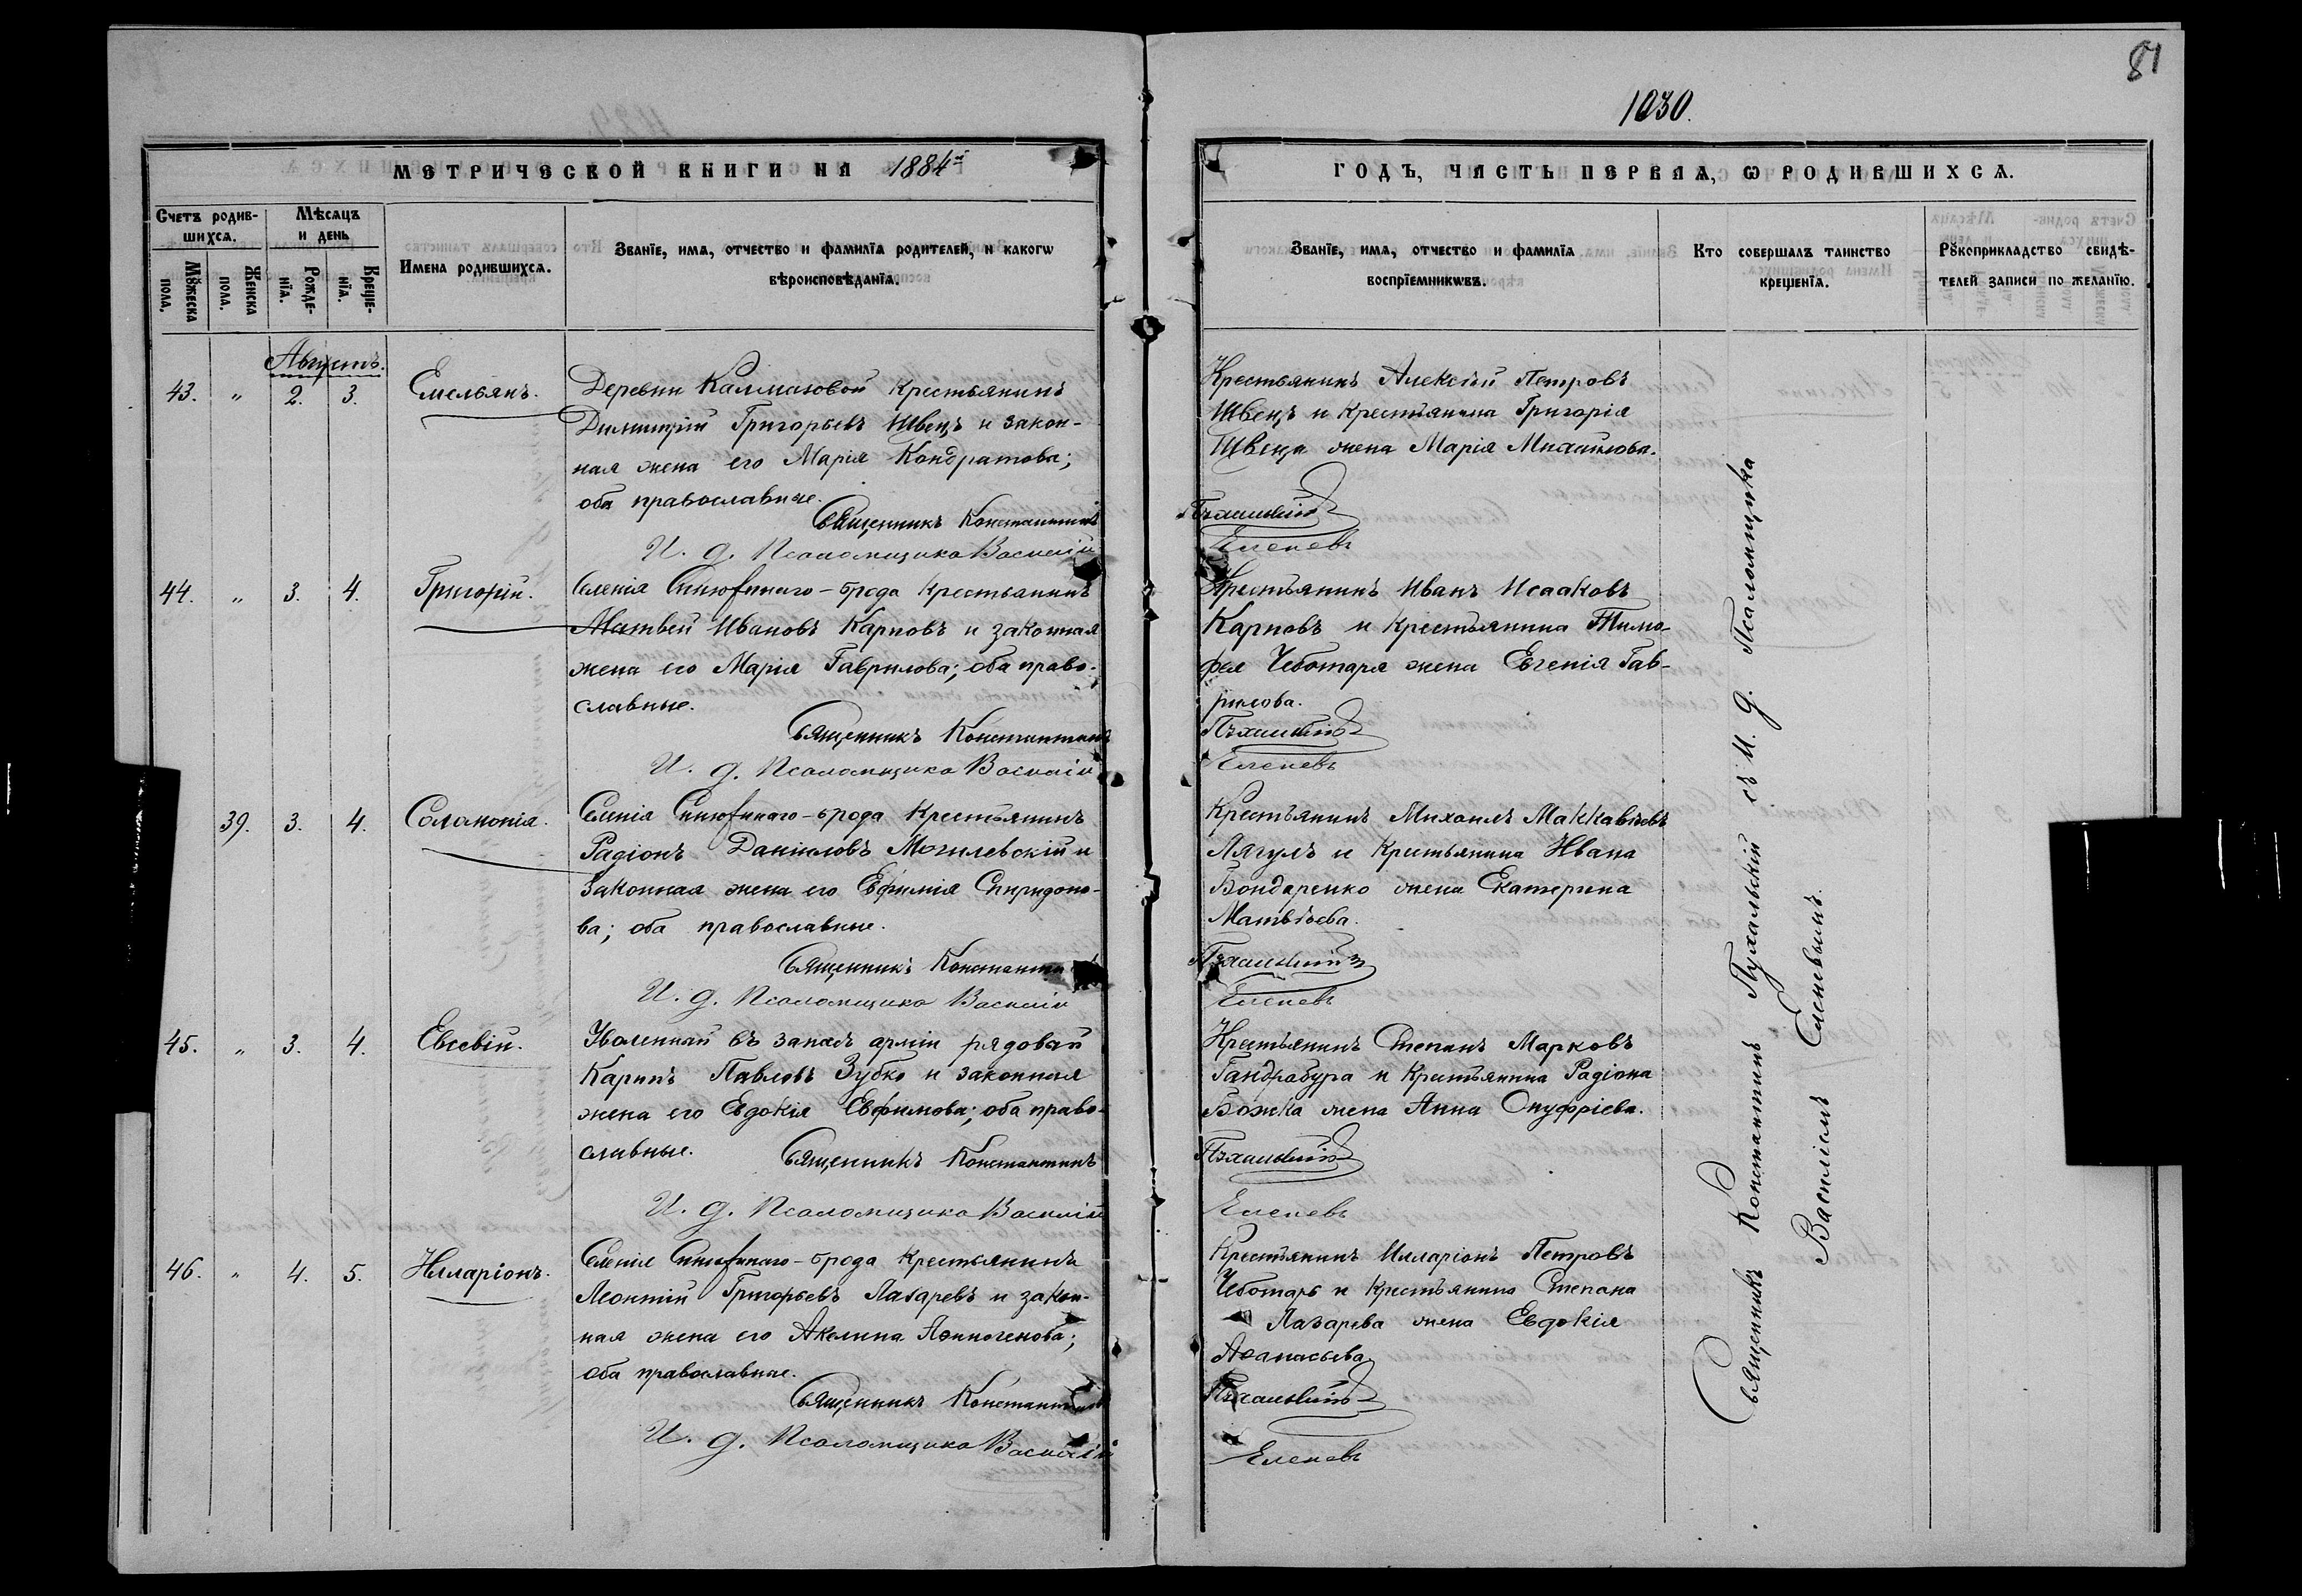 81
1030.
МЕТРИЧЕСКОЙ КНИГИ НА 1884й
ГОДЪ, ЧАСТЬ ПЕРВАЯ, Ѡ РОДИВШИХСЯ.
Счетъ родив-
шихся.
Мѣсяцъ
и день
Мꙋжеска
пола.
Женска
пола.
Рожде-
нїя.
Креще-
нїя.
Имена родившихся.
Званїе, имя, отчество и фамилїя родителей, и какогѡ
вѣроисповѣданїя.
Званїе, имя, отчество и фамилїя
воспрїемникѡвъ.
Кто совершалъ таинство
крещенїя.
Рꙋкоприкладство свидѣ-
телей записи по желанїю.
Августъ.
43. " 2. 3. Емельянъ.
Деревни Калмазовой крестьянинъ
Димитрій Григорьевъ Швецъ и закон-
ная жена его Марія Кондратова;
оба православные.
Священникъ Константинъ
И. д. Псаломщика Василій
Крестьянинъ Алексѣй Петровъ
Швецъ и крестьянина Григорія
Швеца жена Марія Михаилова.
Пухальскій
Еленевъ
44. " 3. 4. Григорій.
Селенія брода крестьянинъ
Матвей Ивановъ Карповъ и законная
жена его Марія Гаврилова; оба право-
славные.
Священникъ Константинъ
И. д. Псаломщика Василій
Крестьянинъ Иванъ Исааковъ
Карповъ и крестьянина Тимо-
фея Чеботаря жена Евгенія Гав-
рилова.
Пухальскій
Еленевъ
39. 3. 4. Соломонія.
Селенія брода крестьянинъ
Радіонъ Даніиловъ Могилевскій и
законная жена его Ефимія Спиридоно-
ва; оба православные.
Священникъ Константинъ
И. д. Псаломщика Василій
Крестьянинъ Михаилъ Маккавѣевъ
Лягулъ и крестьянина Ивана
Бондаренко жена Екатерина
Матвѣева.
Пухальскій
Еленевъ
45. " 3. 4. Евсевій.
Уволенный въ запасъ арміи рядовой
Карпъ Павловъ Зубко и законная
жена его Евдокія Евфимова; оба право-
славные.
Священникъ Константинъ
И. д. Псаломщика Василій
Крестьянинъ Степанъ Марковъ
Гандрабура и крестьянина Радіона
Божка жена Анна Онуфріева.
Пухальскій
Еленевъ
46. " 4. 5. Илларіонъ.
Селенія брода крестьянинъ
Леонтій Григорьевъ Лазаревъ и закон-
ная жена его Акелина;
оба православные.
Священникъ Константинъ
И. д. Псаломщика Василій
Крестьянинъ Илларіонъ Петровъ
Чеботарь и крестьянина Степана
Лазарева жена Евдокія
Аѳанасьева
Пухальскій
Еленевъ
Священникъ Константинъ Пухальскій съ И. д. Псаломщика
Василіемъ Еленевымъ.